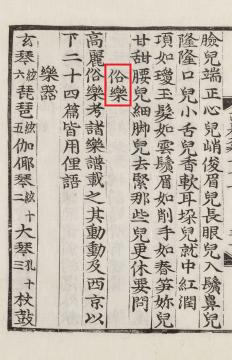 臉兒端正心兒峭俊眉兒長眼兒入鬢鼻兒
隆隆口兒小舌兒香軟耳朶兒就中紅潤
項如瓊玉髮如雲鬢眉如削手如春笋妳兒
甘甜腰兒細脚兒去緊那些兒更休要問
俗樂
高麗俗樂考諸樂譜載之其動動及西京以
下二十四篇皆用俚語
樂器
玄琴絃六琵琶絃五伽倻琴絃十二大琴孔十三杖鼓